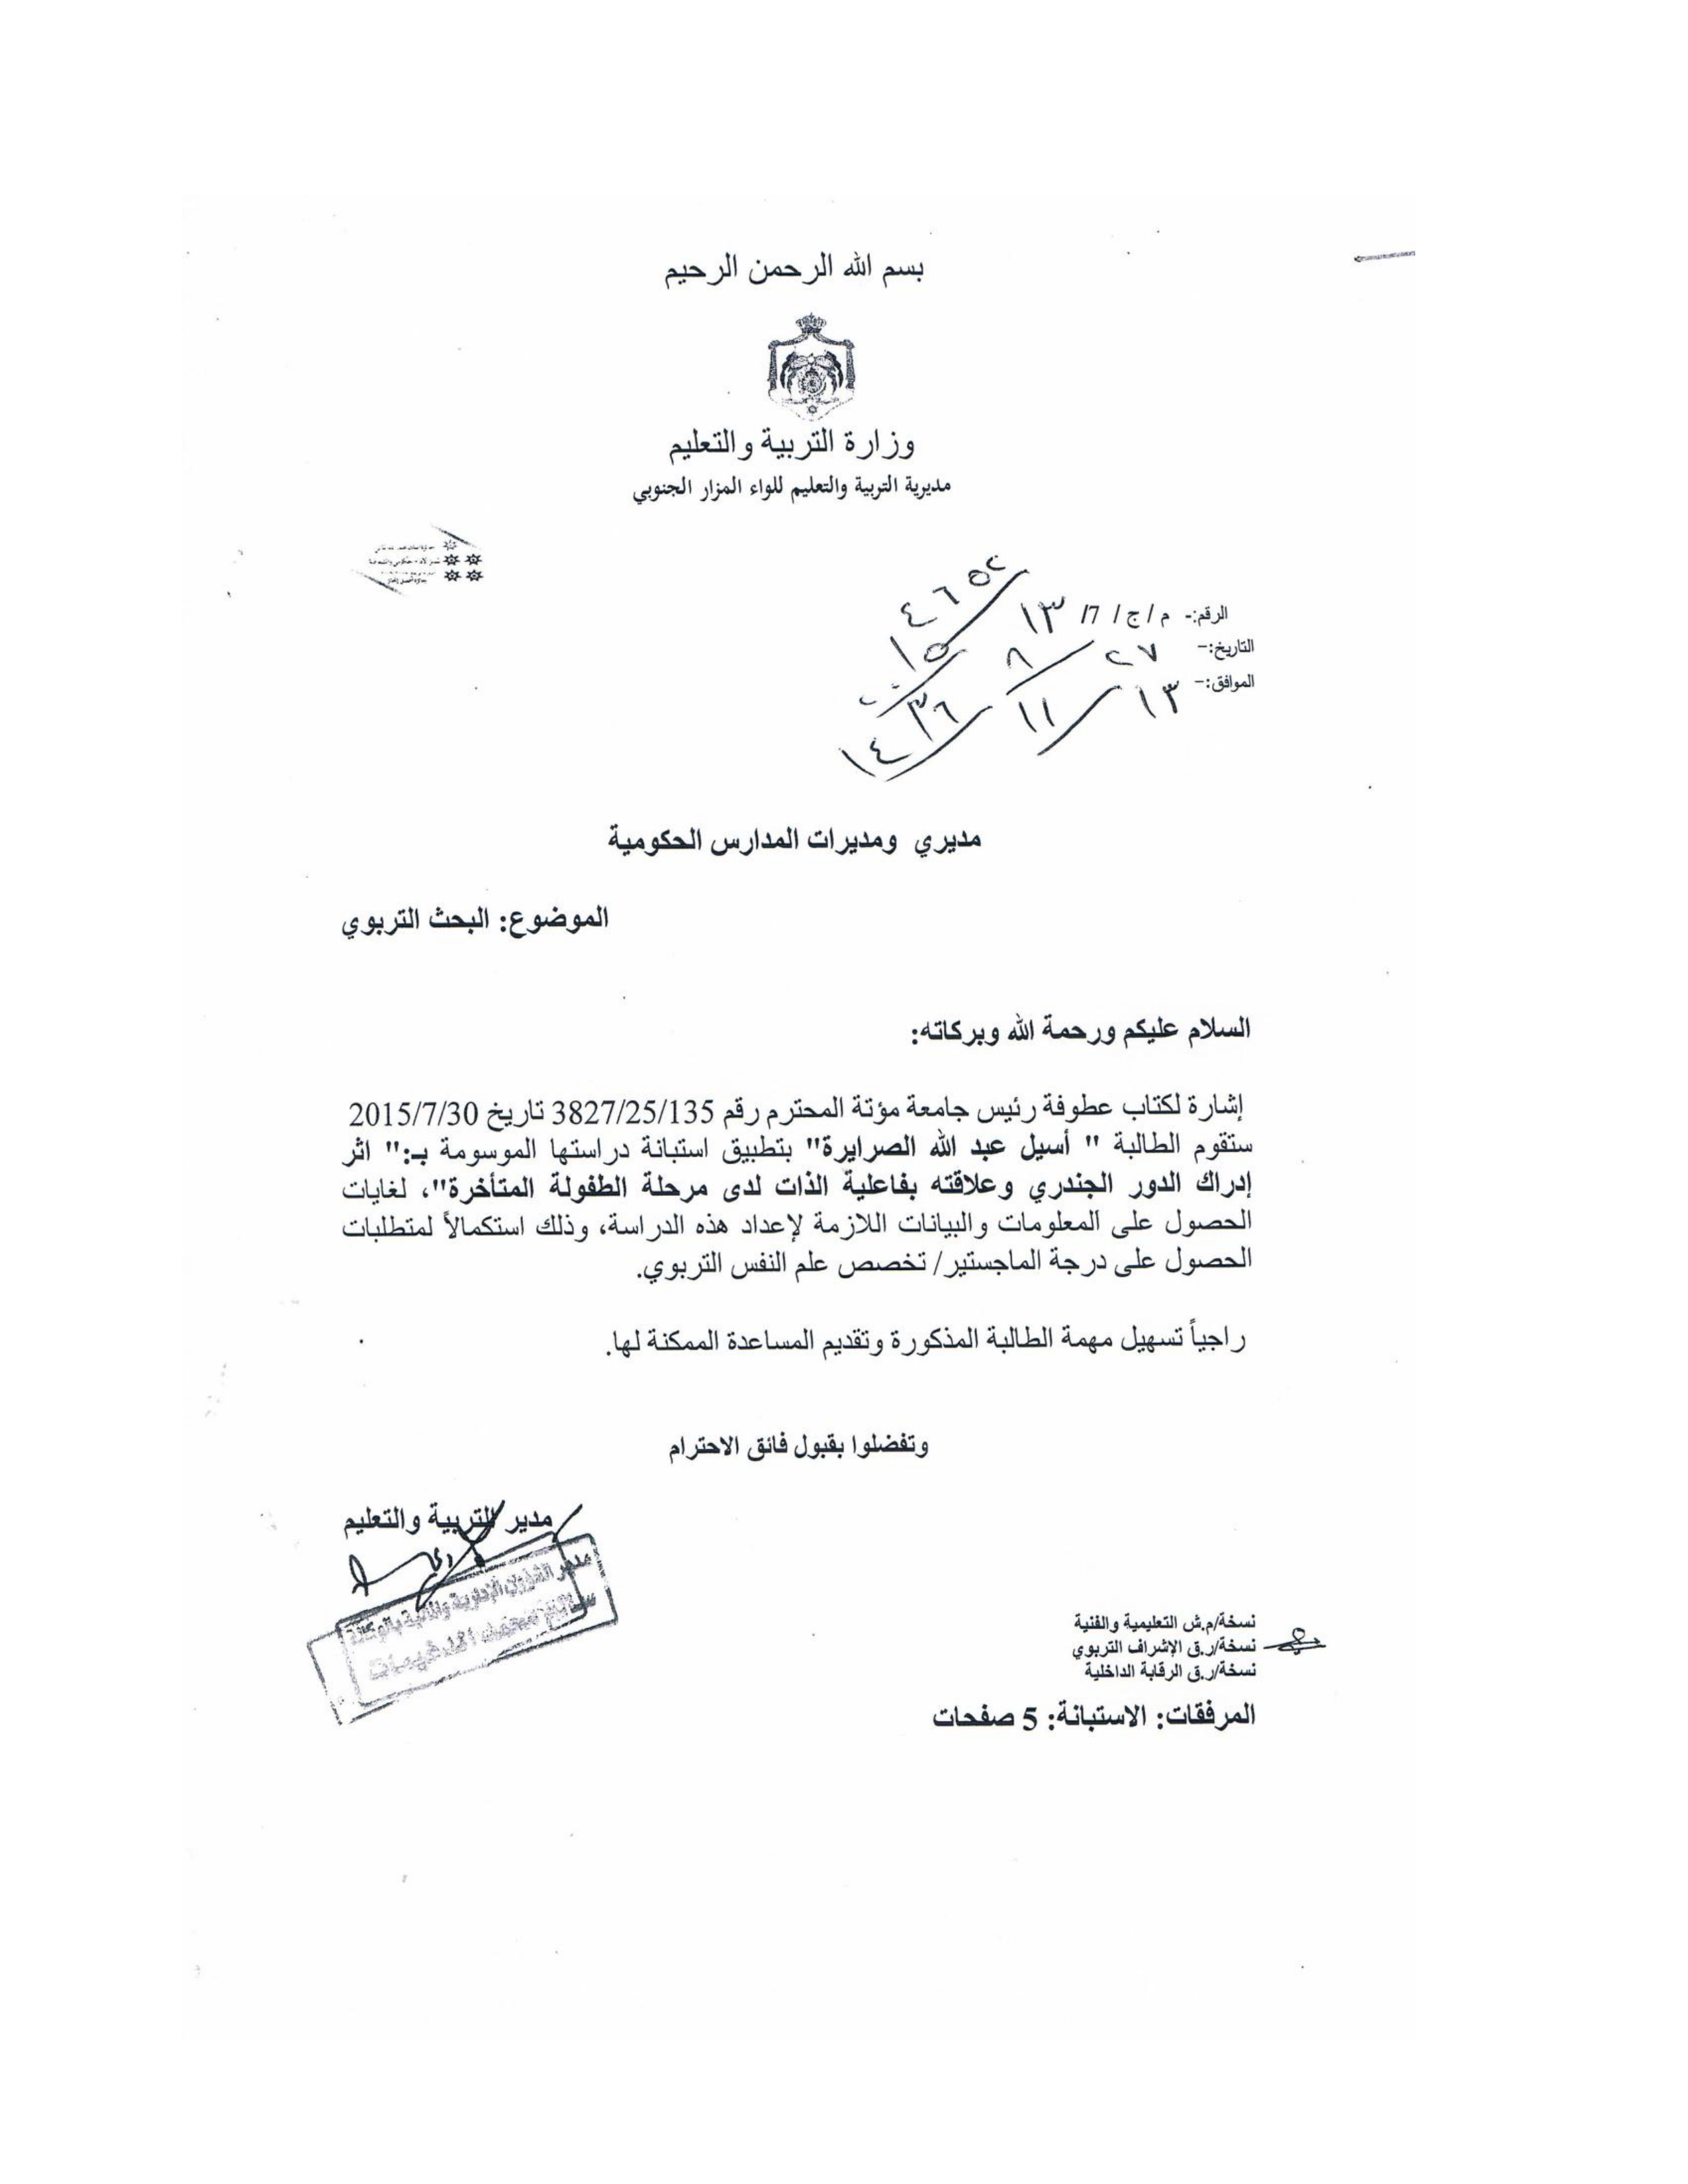 بسم الله الرحمن الرحيم
وزارة التربية والتعليم
مديرية التربية والتعليم للواء المزار الجنوبي
الرقم:- م/ج/ 7/ ١٣ ٤٦٥٢
التاريخ:- ٢٧ / ٨ / ٢٠١٥
الموافق:- ١٣ / ١١ / ١٤٣٦
مديري ومديرات المدارس الحكومية
الموضوع: البحث التربوي
السلام عليكم ورحمة الله وبركاته:
إشارة لكتاب عطوفة رئيس جامعة مؤتة المحترم رقم 3827/25/135 تاريخ 2015/7/30
ستقوم الطالبة " أسيل عبد الله الصرايرة" بتطبيق استبانة دراستها الموسومة بـ:" اثر
إدراك الدور الجندري وعلاقته بفاعلية الذات لدى مرحلة الطفولة المتأخرة"، لغايات
الحصول على المعلومات والبيانات اللازمة لإعداد هذه الدراسة، وذلك استكمالاً لمتطلبات
الحصول على درجة الماجستير/ تخصص علم النفس التربوي.
راجياً تسهيل مهمة الطالبة المذكورة وتقديم المساعدة الممكنة لها.
وتفضلوا بقبول فائق الاحترام
مدير التربية والتعليم
مدير الشؤون الإدارية والمالية بالوكالة
نسخة/م.ش التعليمية والفنية
نسخة/ر.ق الإشراف التربوي
نسخة/ر.ق الرقابة الداخلية
المرفقات: الاستبانة: 5 صفحات